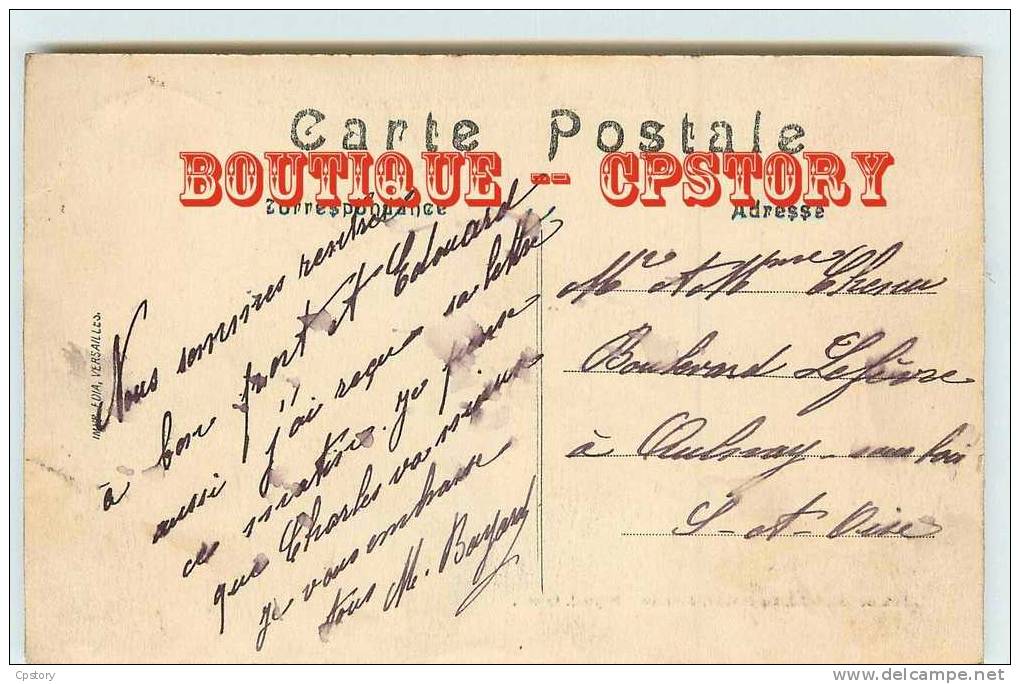 Carte Postale
BOUTIQUE -- CPSTORY
Correspondance
Adresse
Nous sommes rentrés
à bon port et Edouard
aussi j'ai reçu sa lettre
ce matin. je pense
que Charles va mieux
je vous embrasse
tous M. Bayard
Mr et Mme Chenu
Boulevard Lefèvre
à Aulnay-sous bois
S-et-Oise
IMP. EDIA, VERSAILLES.
Cpstory
www.delcampe.net